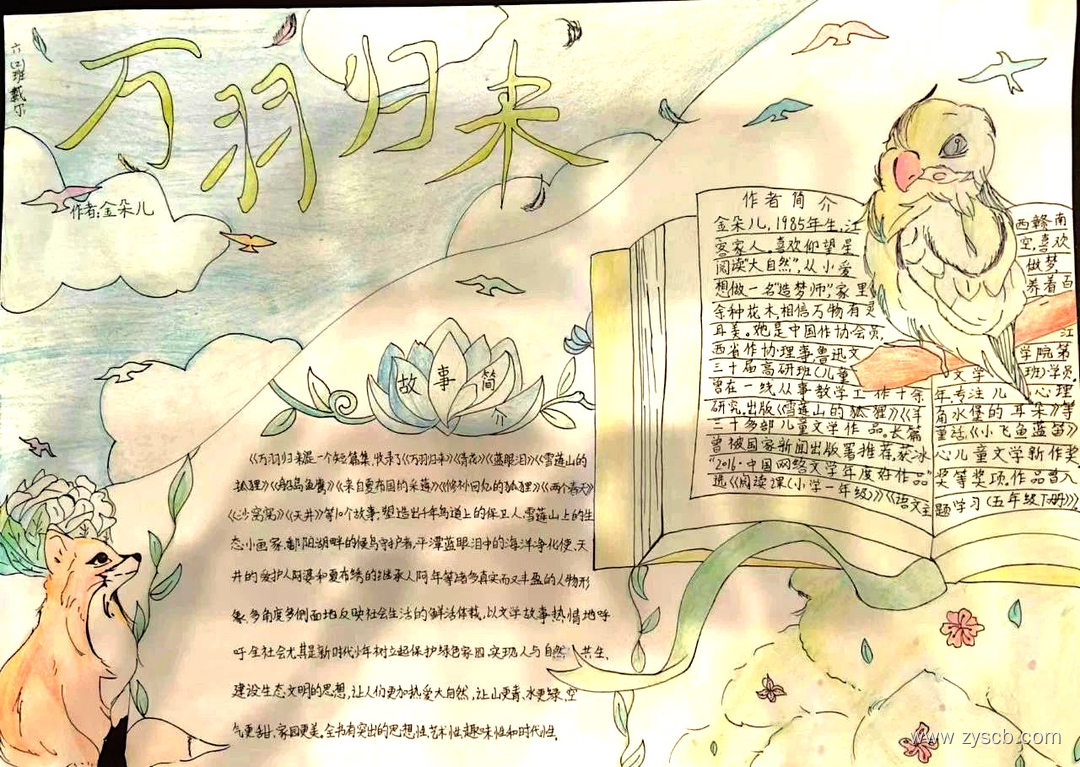 六(2)班戴尔
万羽归来
作者:金朵儿
作者简介
金朵儿,1985年生,江西赣南
客家人。喜欢仰望星空,喜欢
阅读"大自然",从小爱做梦,
想做一名"造梦师",家里养着百
余种花木,相信万物有灵
耳美。她是中国作协会员,江
西省作协理事,鲁迅文学院第
三十届高研班(儿童文学班)学员,
曾在一线从事教学工作十余年,专注儿心理
研究,出版《雪莲山的狐狸》《羊角水堡的耳朵》等
三十多部儿童文学作品。长篇童话《小飞鱼蓝笛》
曾被国家新闻出版署推荐,获冰心儿童文学新作奖、
"2016·中国网络文学年度好作品"奖等奖项,作品曾入
选《阅读课(小学一年级)》《语文主题学习(五年级下册)》
故事简介
《万羽归来》是一个短篇集,收录了《万羽归来》《青花》《蓝眼泪》《雪莲山的
狐狸》《船岛鱼鹰》《来自夏布国的采莲》《修补回忆的狐狸》《两个春天》
《沙窝窝》《天井》等10个故事,塑造出千年鸟道上的保卫人,雪莲山上的生
态小画家,鄱阳湖畔的候鸟守护者,平潭蓝眼泪中的海洋净化使,天
井的爱护人阿婆和夏布绣的继承人阿年等诸多真实而又丰盈的人物形
象,多角度多侧面地反映社会生活的鲜活体裁,以文学故事热情地呼
吁全社会尤其是新时代少年树立起保护绿色家园,实现人与自然共生,
建设生态文明的思想,让人们更加热爱大自然,让山更青,水更绿,空
气更甜,家园更美。全书有突出的思想性,艺术性,趣味性和时代性。
www.zyscb.com